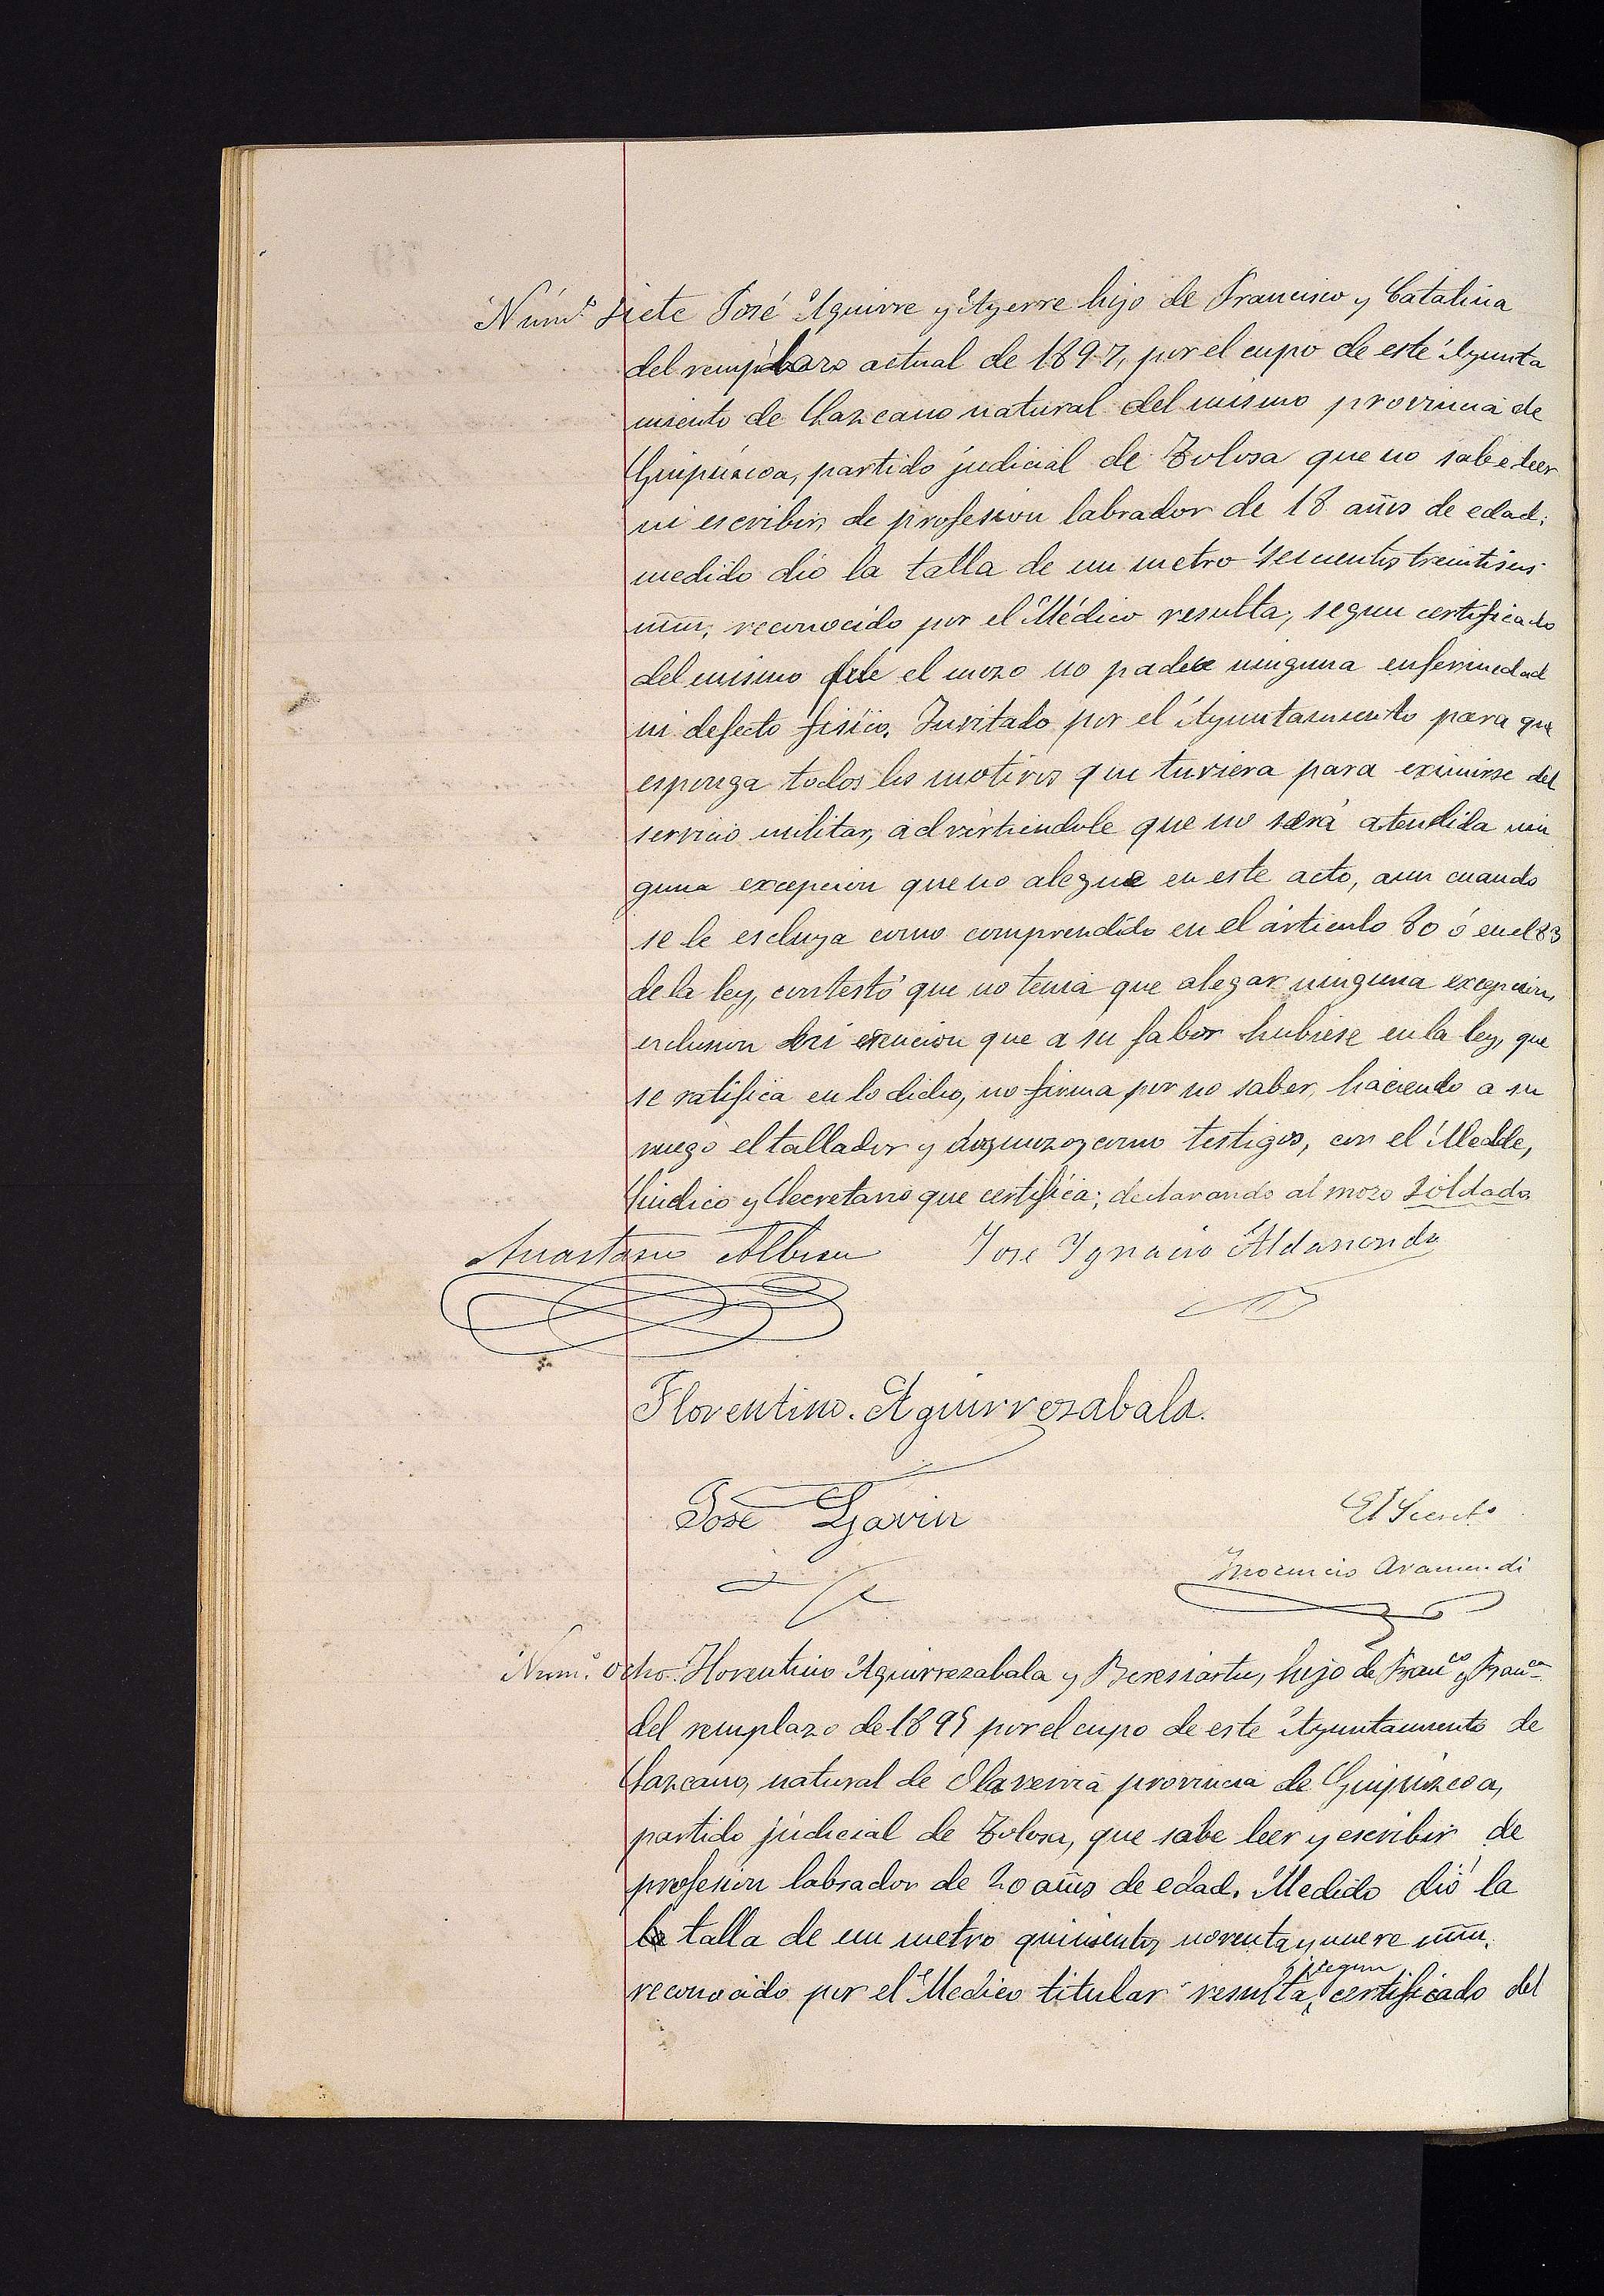 Núm.º siete José Aguirre y Ayerre hijo de Francisco y Catalina
del remplazo actual de 1897, por el cupo de este Ayunta
miento de Lazcano natural del mismo provincia de
Guipúzcoa, partido judicial de Tolosa que no sabe leer
ni escribir, de profesion labrador de 18 años de edad;
medido dio la talla de un metro seicientos treintiseis
mm, reconocido por el Médico resulta, segun certificado
del mismo que el mozo no padece ninguna enfermedad
ni defecto fisico. Invitado por el Ayuntamiento para que
esponga todos los motivos que tuviera para eximirse del
servicio militar, advirtiendole que no será atendida nin
guna excepcion que no alegue en este acto, aun cuando
se le escluya como comprendido en el árticulo 80 ó en el 83
de la ley, contestó que no tenia que alegar ninguna excepcion,
exclusion ni exencion que a su fabor hubiese en la ley, que
se ratifica en lo dicho, no firma por no saber, haciendo a su
ruego el tallador y dos mozos como testigos, con el Alcalde,
Sindico y Secretario que certifica; declarando al mozo soldado
Anastasio Albisu José Ygnacio Aldasoro
Florentino. Aguirrezabala.
José Garin
El Secret.º
Ynocencio Aramendi
Núm.º ocho. Florentino Aguirrezabala y Beresiartu, hijo de Franco y Franca
del remplazo de 1895 por el cupo de este Ayuntamiento de
Lazcano, natural de Olaverria provincia de Guipúzcoa,
partido júdicial de Tolosa, que sabe leer y escribir de
profesion labrador de 20 años de edad. Medido dió la
la talla de un metro quinientos noventa y nueve mm.
segun
reconocido por el Medico titular resulta, certificado del